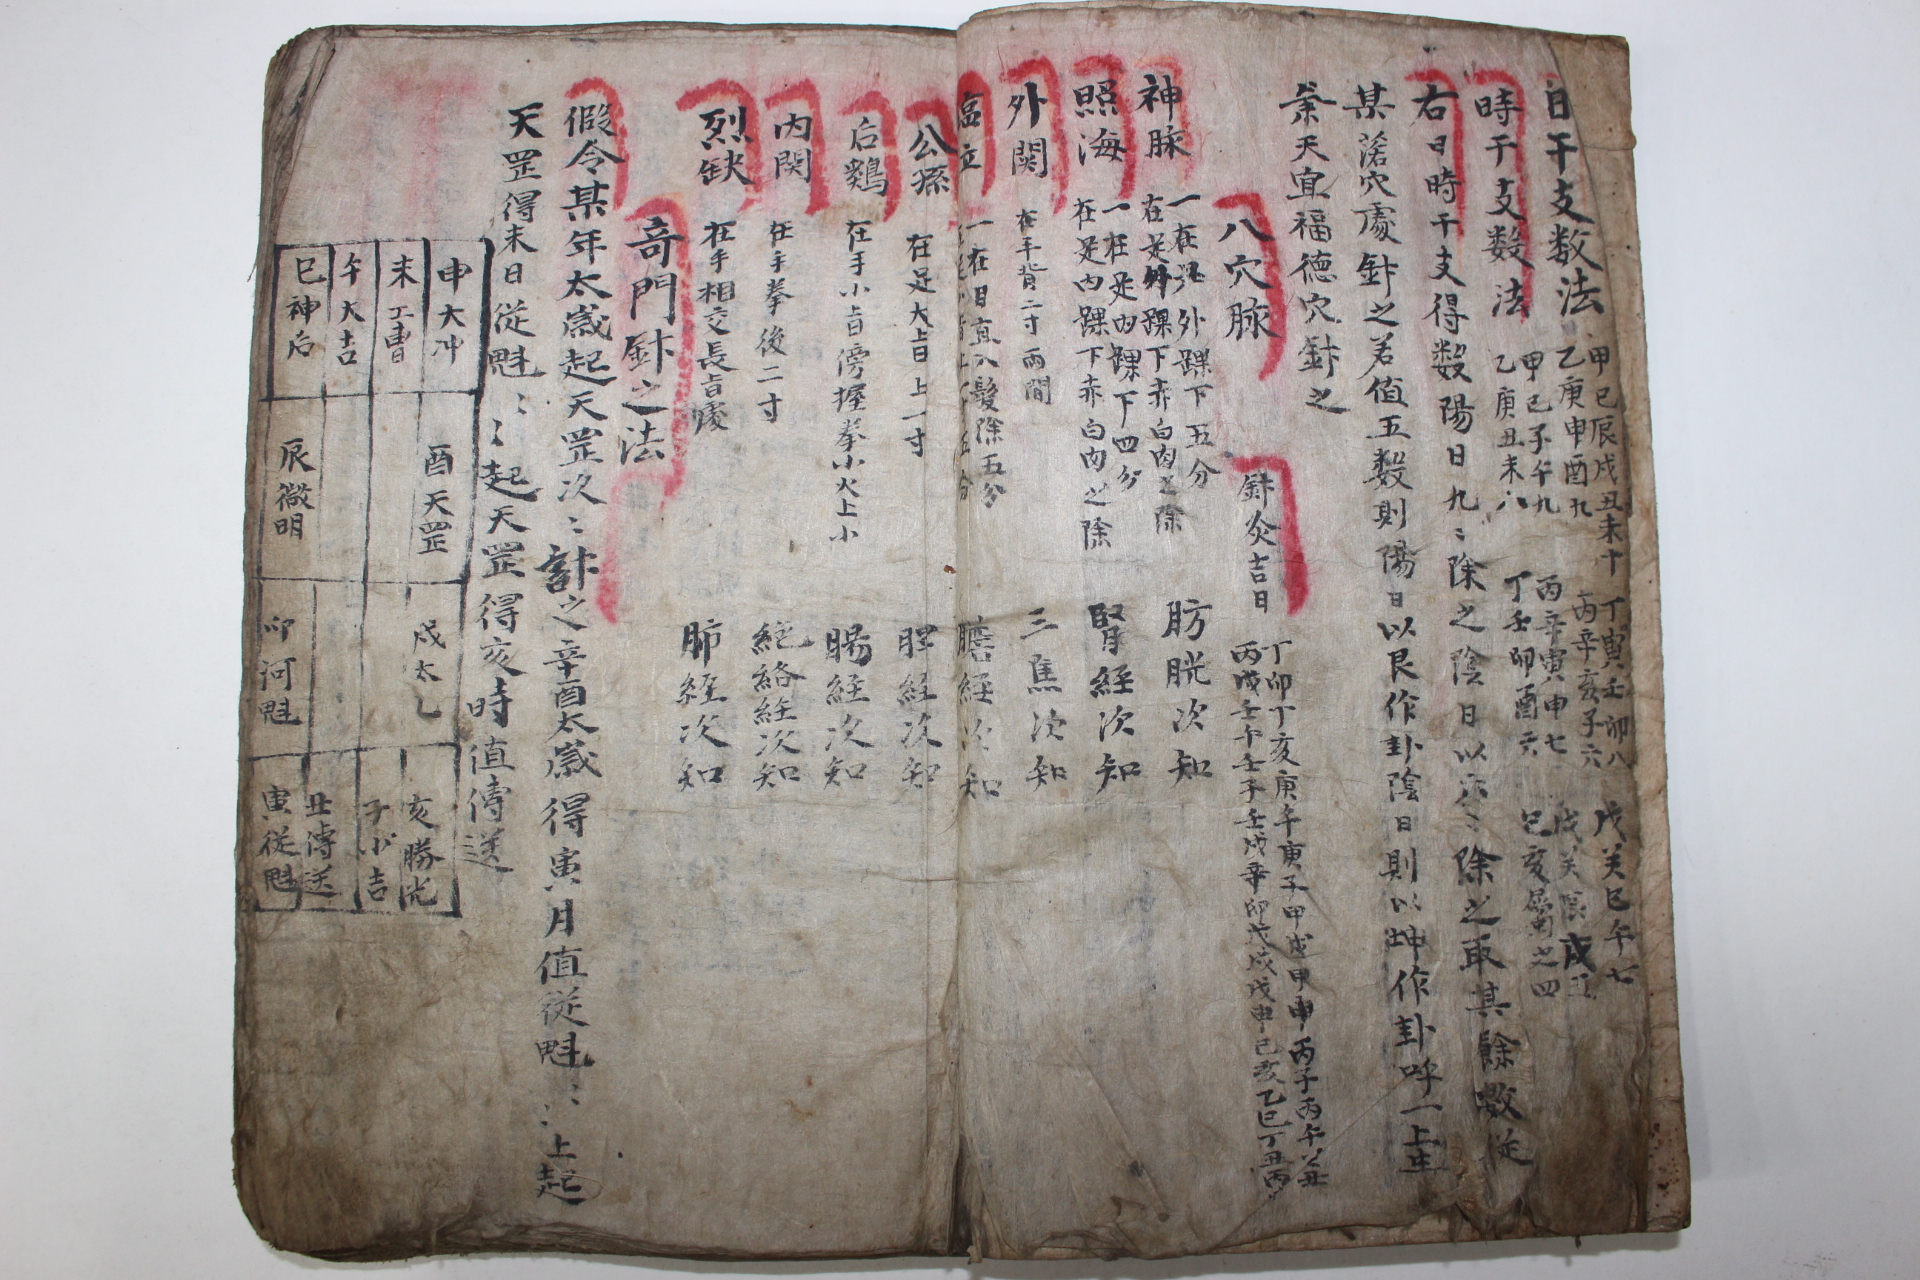 日干支数法
甲己辰戌丑未十 丁寅壬卯八 戊癸巳午七
乙庚申酉九 丙辛亥子六
時干支数法
甲己子午九 丙辛寅申七
乙庚丑未八 丁壬卯酉六 巳亥屬之四
右日時干支得数陽日九〻除之陰日以六〻除之取其餘數從
某落穴處針之若值五数則陽日以艮作卦陰日則以坤作卦呼一上生
業天宜福德穴針之
針灸吉日
丁卯丁亥庚午庚子甲戌甲申丙子丙午
丙戌壬午壬子壬戌辛卯戊戌戊申己亥乙巳丁丑丙
八穴脉
神脉 一在 外踝下五分
在足外踝下赤白肉之除 肪胱次知
照海 一在足內踝下四分
在足內踝下赤白肉之除 腎経次知
外関 在手背二寸兩間 三焦次知
臨立 一在目直入髮除五分
膽経次知
公孫 在足大旨上一寸 脾経次知
后鷄 在手小旨傍握拳小火上小 腸経次知
內関 在手拳後二寸 絡経次知
烈缺 在手相交長旨處 肺経次知
奇門針之法
假令某年太歲起天罡次〻計之辛酉太歲得寅月值從魁〻〻上起
天罡得未日從魁〻〻起天罡得亥時值傳送
申大冲
未工曹
午大吉
巳神后
酉天罡
辰徵明
戌太乙
卯河魁
亥勝光
子小吉
丑傳送
寅從魁